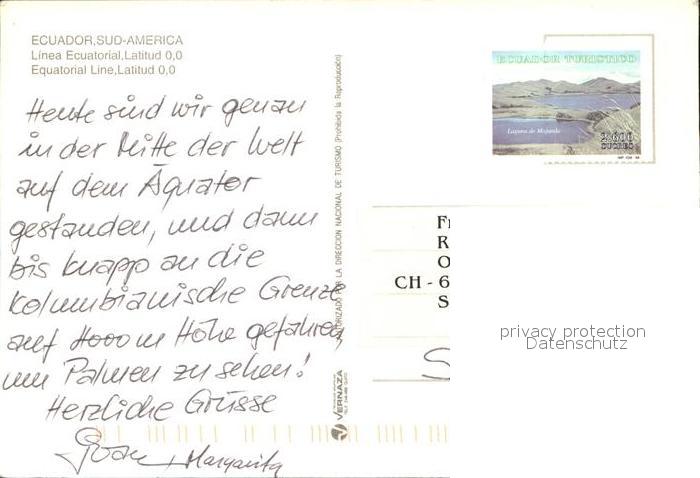 ECUADOR,SUD-AMERICA
Línea Ecuatorial,Latitud 0,0
Equatorial Line,Latitud 0,0
Heute sind wir genau
in der Mitte der Welt
auf dem Äquator
gestanden, und dann
bis knapp an die
kolumbianische Grenze
auf 4000 m Höhe gefahren,
um Palmen zu sehen!
Herzliche Grüsse
+ Margarita
AUTORIZADO POR LA DIRECCION NACIONAL DE TURISMO (Prohibida la Reproducción)
VERNAZA
ECUADOR TURISTICO
Laguna de Mojanda
2.600
SUCRES
F
R
O
CH - 6
S
S
privacy protection
Datenschutz